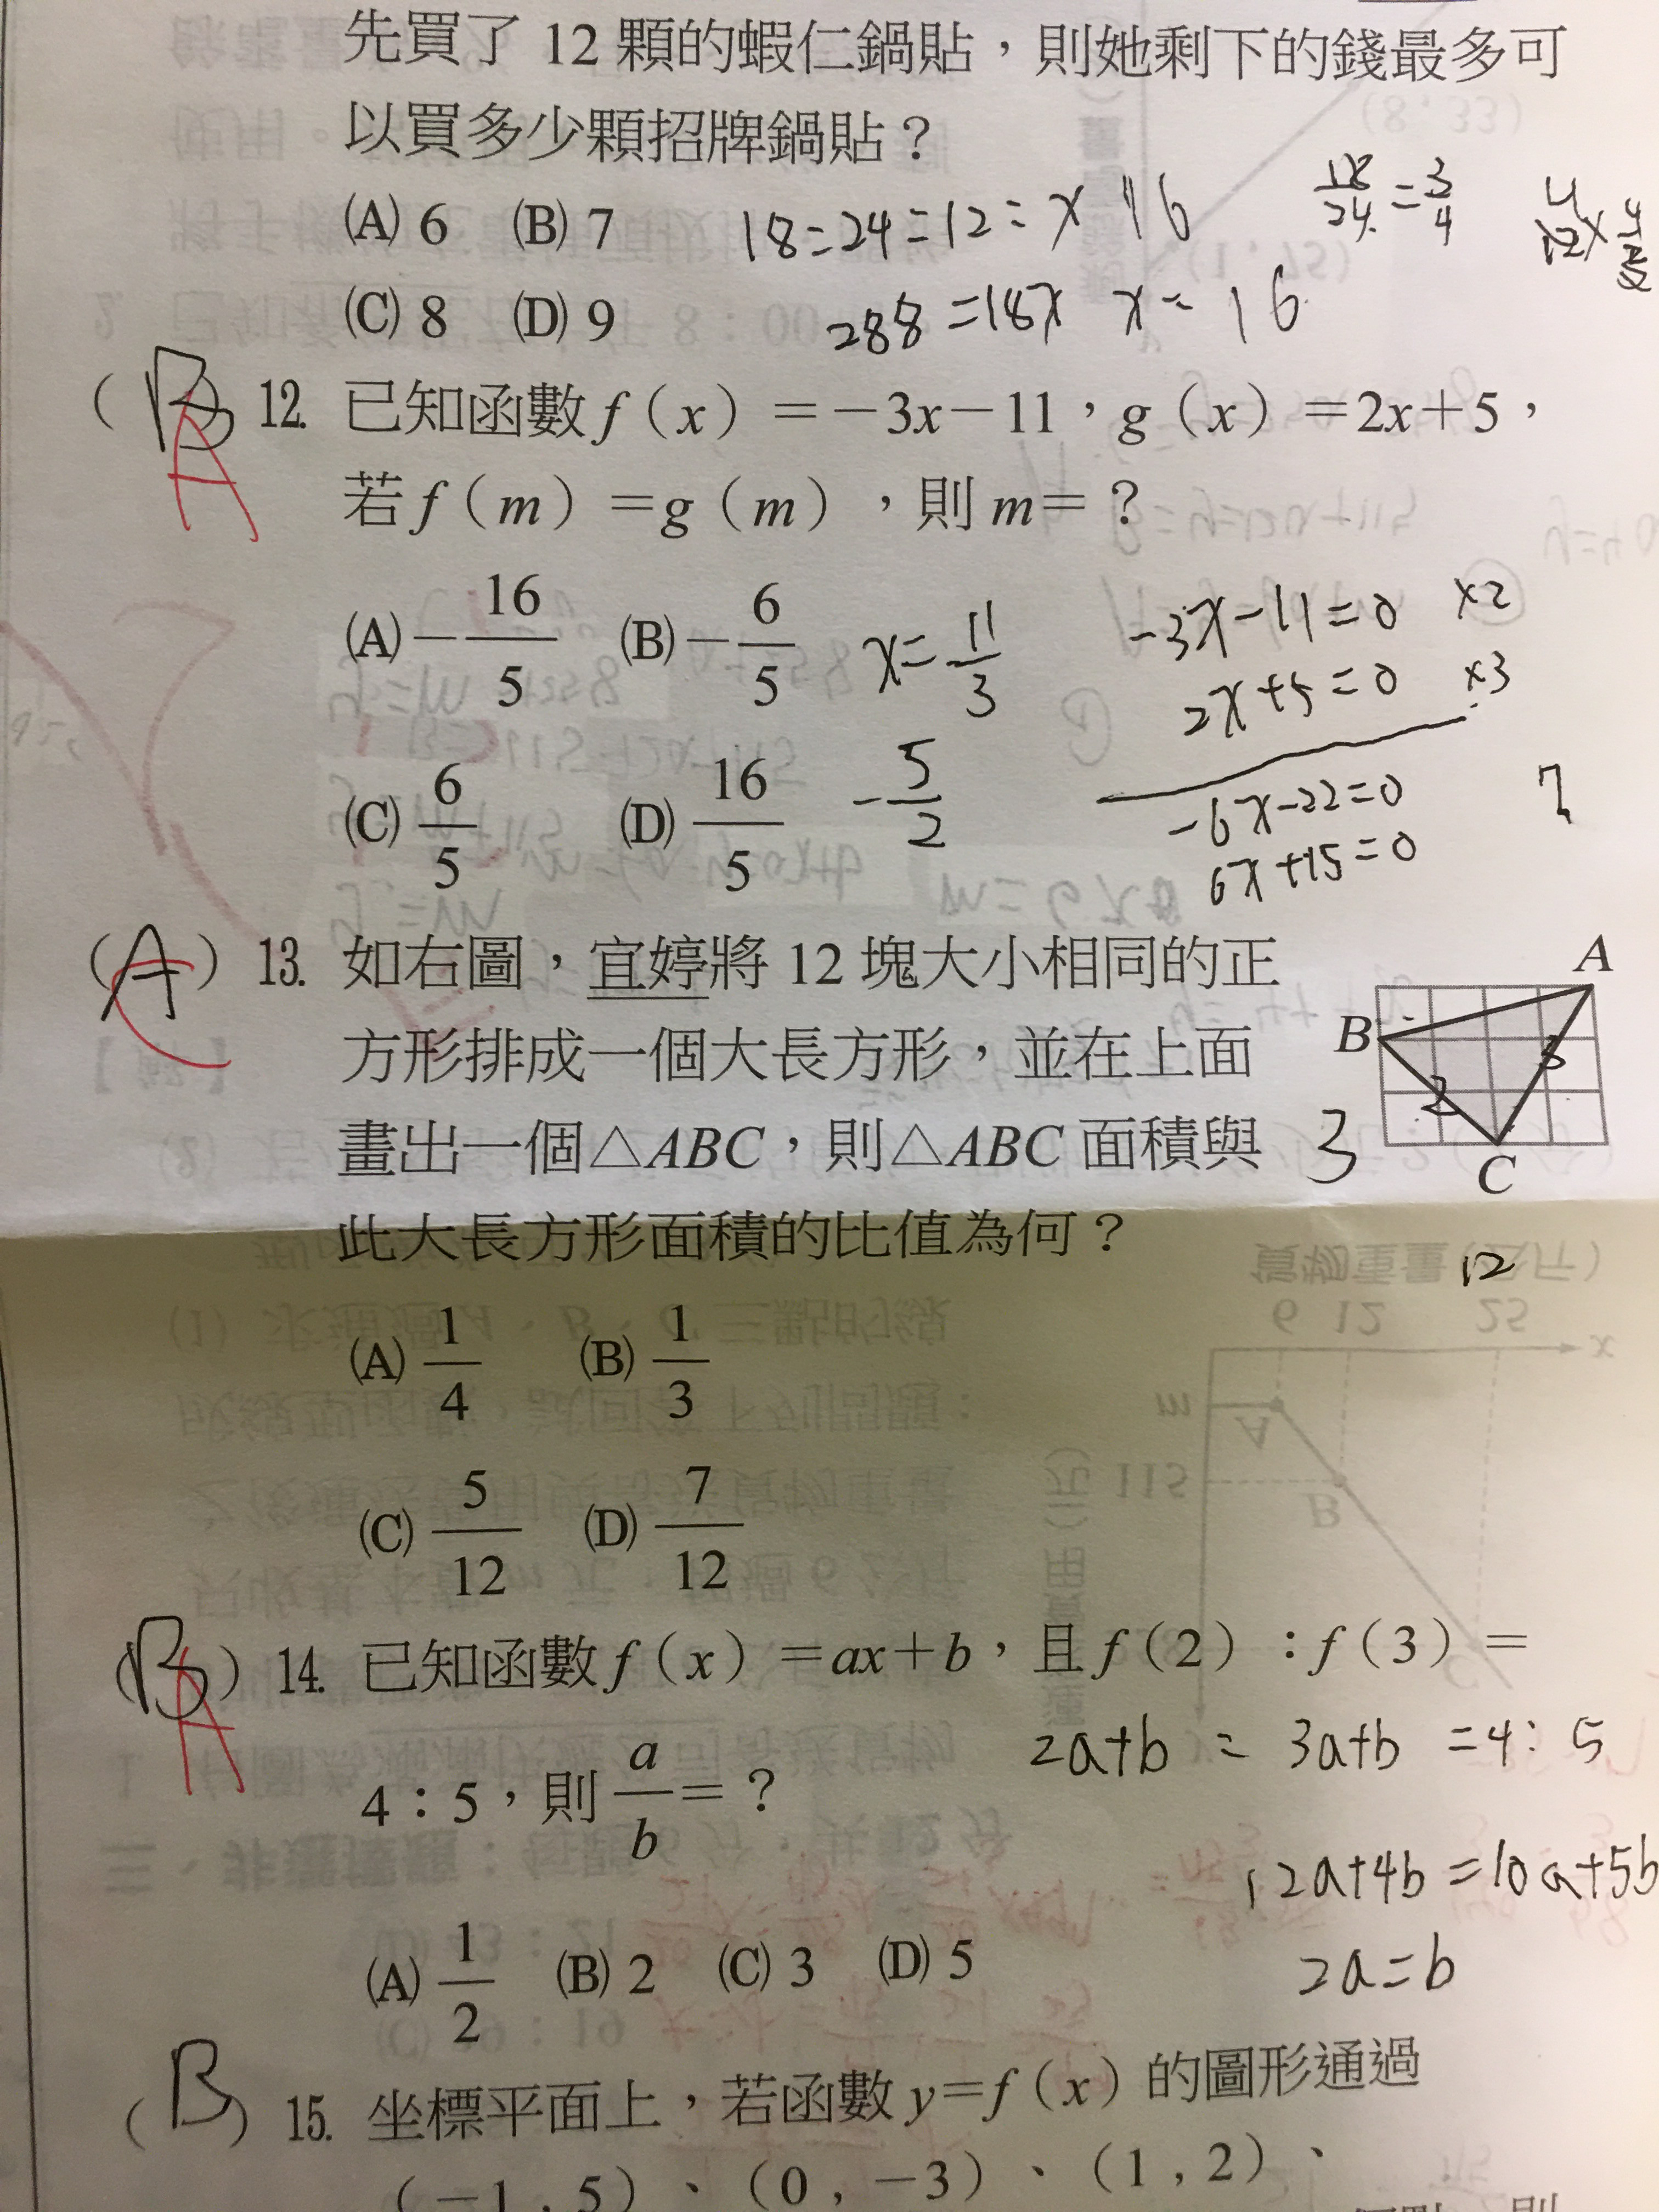 先買了 12 顆的蝦仁鍋貼,則她剩下的錢最多可
以買多少顆招牌鍋貼?
(A) 6 (B) 7
18=24=12=x 16
18/24=3/4
(C) 8 (D) 9
288=18x x=16
(B) 12. 已知函數 f(x)=-3x-11,g(x)=2x+5,
A
若 f(m)=g(m),則 m=?
(A) -16/5 (B) -6/5
x=11/3
-3x-11=0 ×2
2x+5=0 ×3
(C) 6/5 (D) 16/5
-5/2
-6x-22=0
6x+15=0
(A) 13. 如右圖,宜婷將 12 塊大小相同的正
C
方形排成一個大長方形,並在上面
畫出一個△ABC,則△ABC 面積與
此大長方形面積的比值為何?
A
B
C
3
12
(A) 1/4 (B) 1/3
(C) 5/12 (D) 7/12
(B) 14. 已知函數 f(x)=ax+b,且 f(2):f(3)=
A
4:5,則 a/b=?
2a+b = 3a+b =4:5
12a+4b=10a+5b
2a=b
(A) 1/2 (B) 2 (C) 3 (D) 5
(B) 15. 坐標平面上,若函數 y=f(x)的圖形通過
(-1,5)、(0,-3)、(1,2)、